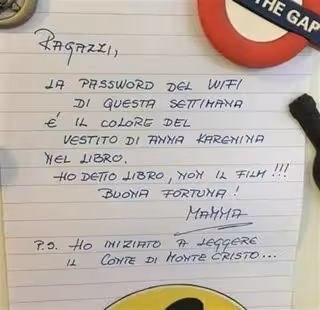 THE GAP
RAGAZZI,
LA PASSWORD DEL WIFI
DI QUESTA SETTIMANA
E' IL COLORE DEL
VESTITO DI ANNA KARENINA
NEL LIBRO.
HO DETTO LIBRO, NON IL FILM!!!
BUONA FORTUNA!
MAMMA
P.S. HO INIZIATO A LEGGERE
IL CONTE DI MONTE CRISTO...